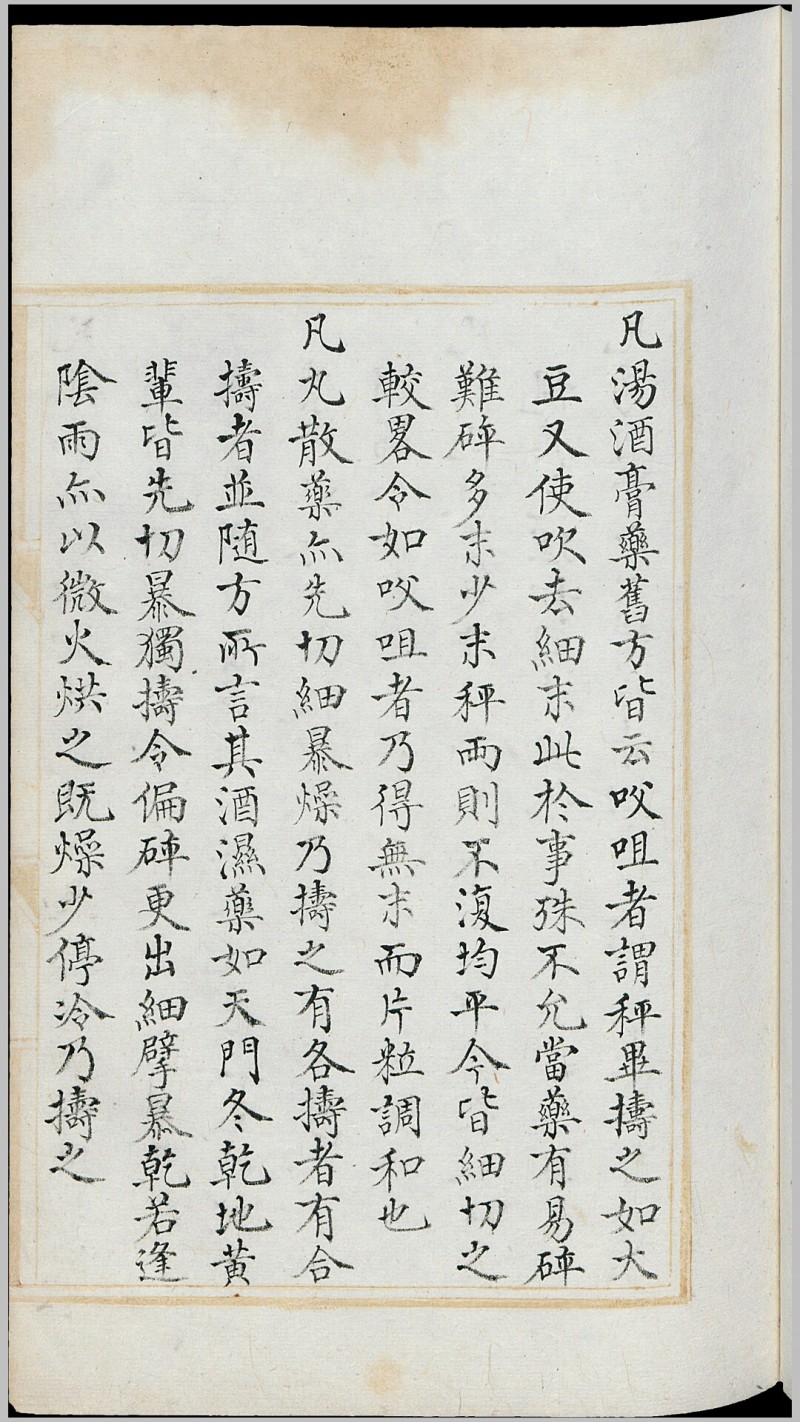 凡湯酒膏藥舊方皆云㕮咀者謂秤畢擣之如大
豆又使吹去細末此於事殊不允當藥有易碎
難碎多末少末秤兩則不復均平今皆細切之
較畧令如㕮咀者乃得無末而片粒調和也
凡丸散藥亦先切細暴燥乃擣之有各擣者有合
擣者並随方所言其酒濕藥如天門冬乾地黄
輩皆先切暴獨擣令偏碎更出細擘暴乾若逢
隂雨亦以微火烘之既燥少停冷乃擣之